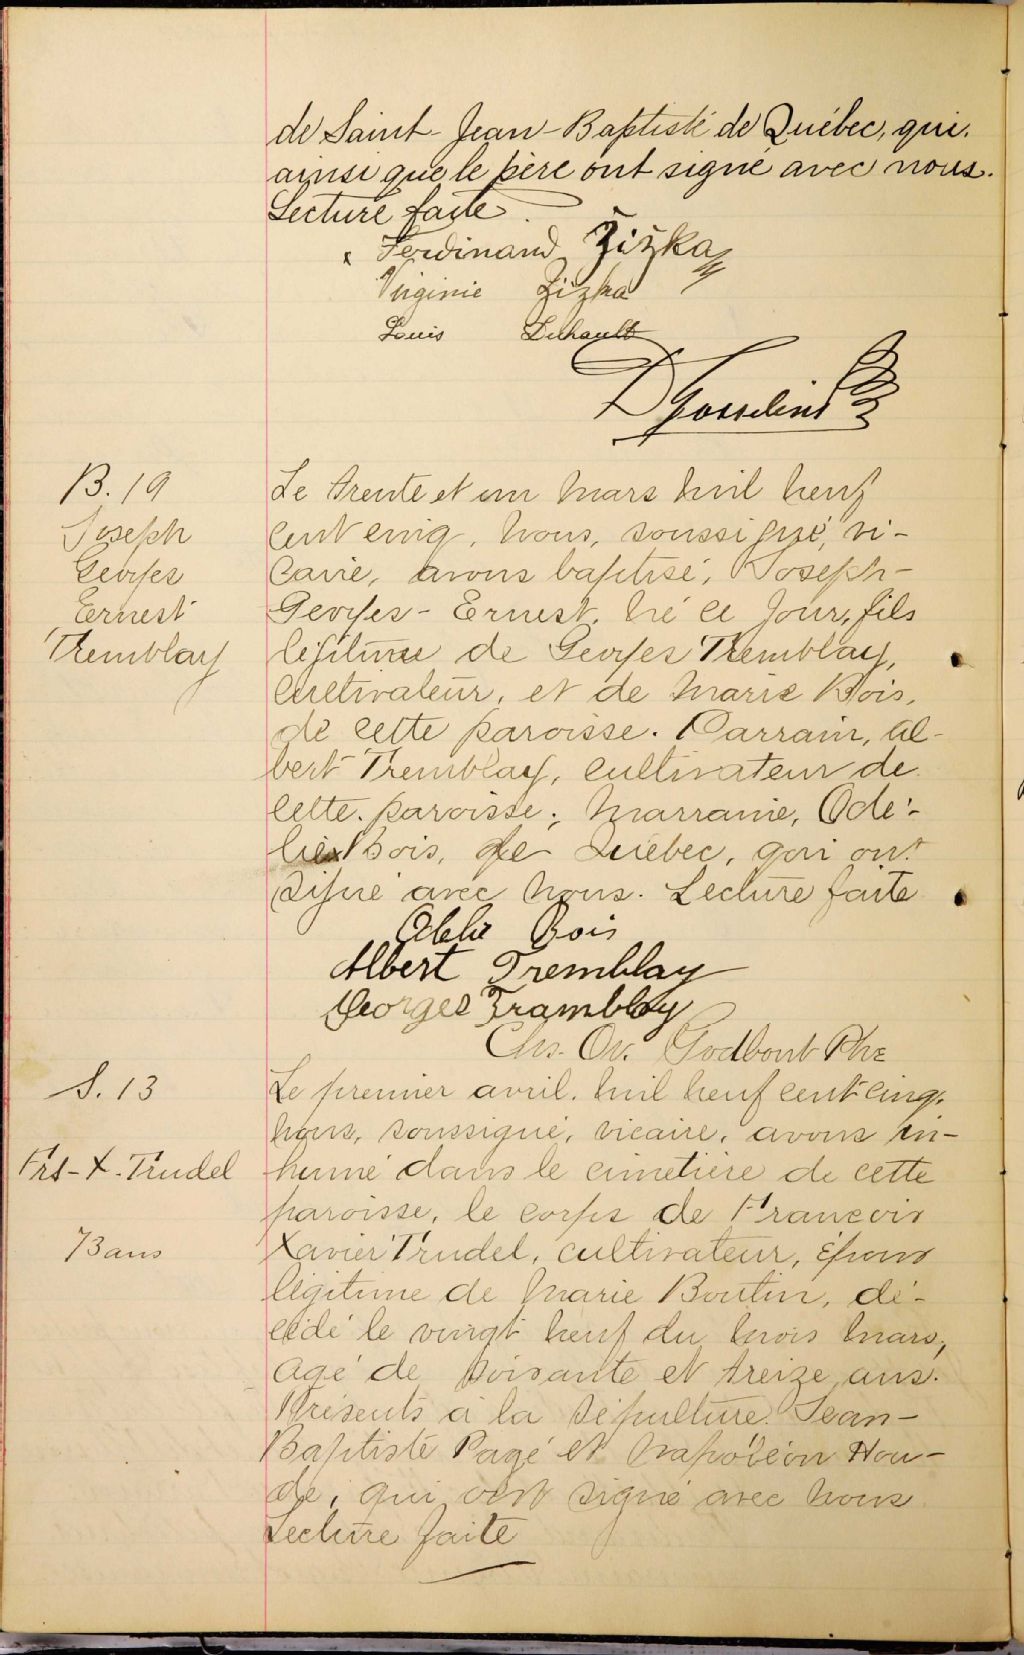 de Saint-Jean-Baptiste de Québec, qui,
ainsi que le père ont signé avec nous.
Lecture faite.
x Ferdinand Žižka
Virginie Žižka
Louis Dehault
D Gosselin
B. 19
Joseph
Georges
Ernest
Tremblay
Le trente et un mars mil neuf
cent cinq, nous, soussigné, vi-
caire, avons baptisé, Joseph-
Georges-Ernest, né ce jour, fils
légitime de Georges Tremblay,
cultivateur, et de Marie Bois,
de cette paroisse. Parrain, Al-
bert Tremblay, cultivateur de
cette paroisse; Marraine, Odé-
lie Bois, de Québec, qui ont
signé avec nous. Lecture faite
Bois
Albert Tremblay
Georges Trambblay
Chs. Ov. Godbout Ptre
S. 13
Frs-X. Trudel
73 ans
Le premier avril, mil neuf cent cinq,
nous, soussigné, vicaire, avons in-
humé dans le cimetière de cette
paroisse, le corps de François
Xavier Trudel, cultivateur, époux
légitime de Marie Boutin, dé-
cédé le vingt neuf du mois mars,
agé de soixante et treize ans.
Présents à la sépulture. Jean-
Baptiste Pagé et Napoléon Hou-
de, qui ont signé avec nous
Lecture faite